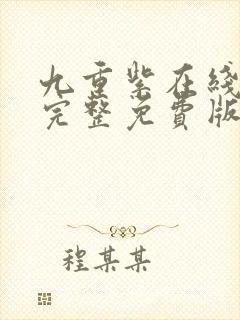 九重紫在线
完整免費版
程某某